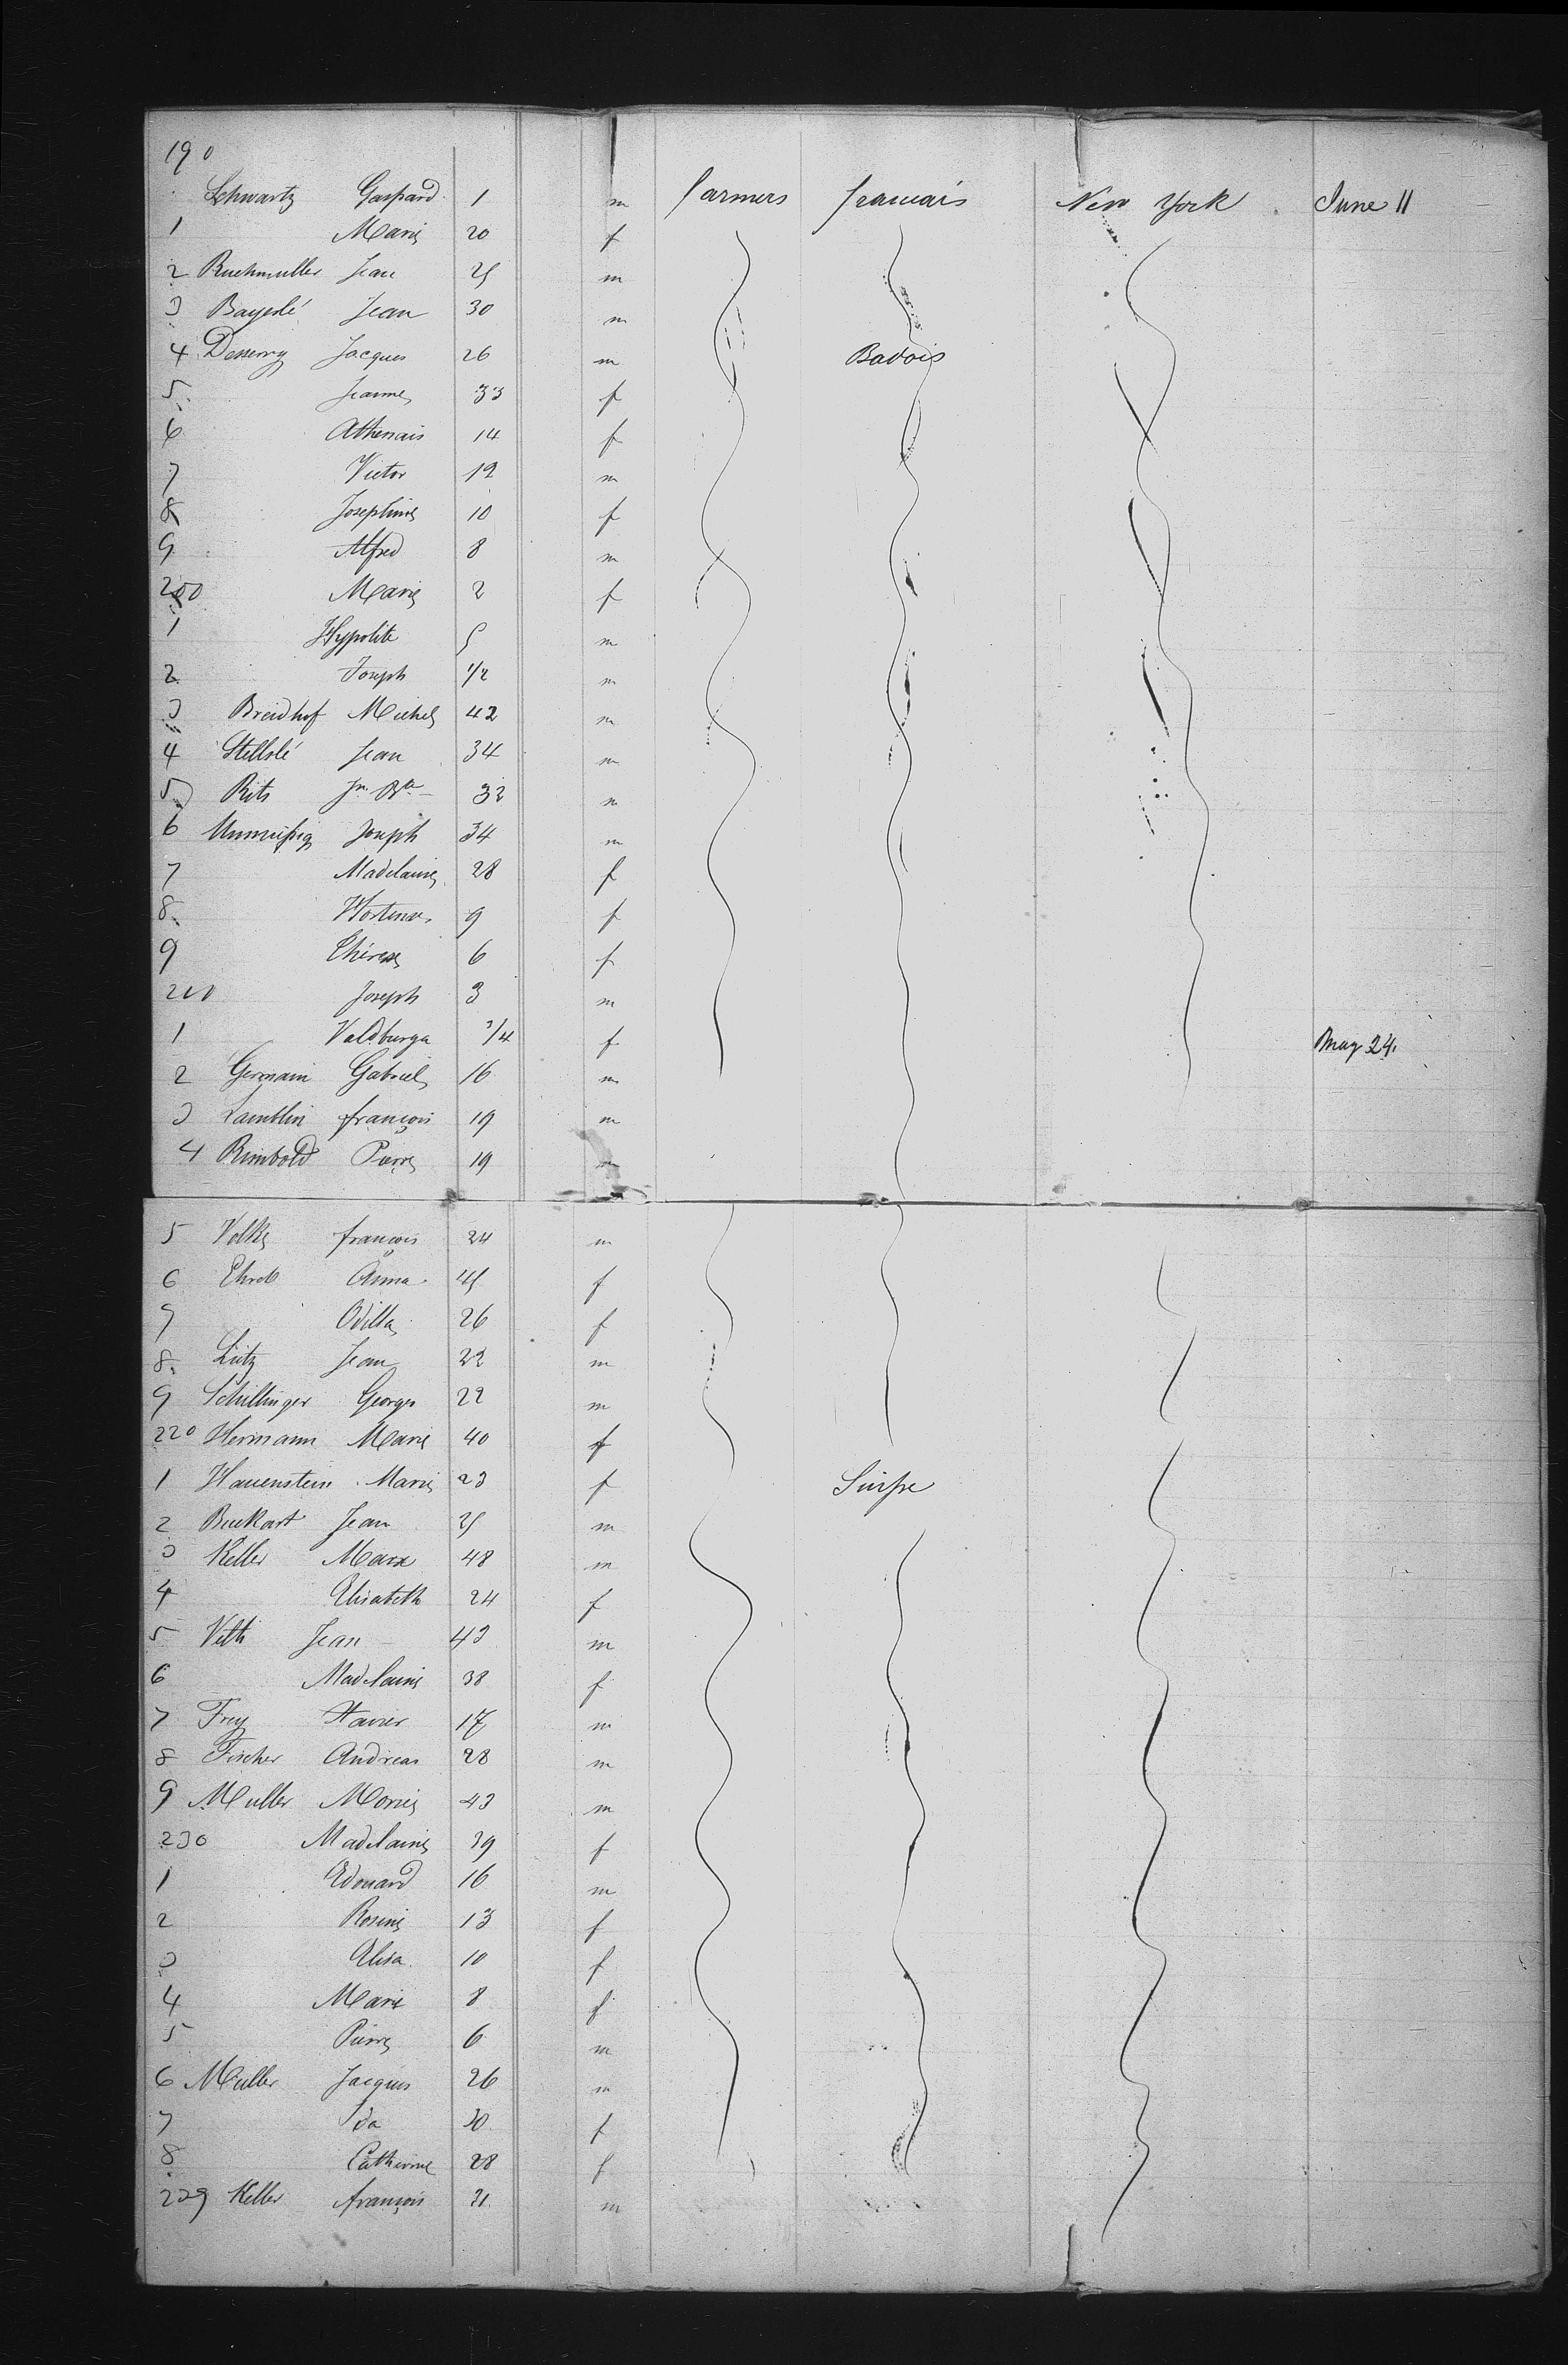 190
Schwartz Gaspard 1 m farmers francais New York June 11
1 Marie 20 f
2 Ruehmuller Jean 25 m
3 Bayerlé Jean 30 m
4 Jacques 26 m Badois
5 Jeanne 33 f
6 Athenais 14 f
7 Victor 12 m
8 Josephine 10 f
9 Alfred 8 m
200 Marie 2 f
1 Hypolite 5 m
2 Joseph 1/2 m
3 Breidhof Michel 42 m
4 Stellslé Jean 34 m
5 Rits Jn Bte 32 m
6 Joseph 34 m
7 Madelaine 28 f
8 Hortense 9 f
9 Thérese 6 f
210 Joseph 3 m
1 Valdburga 3/4 f May 24.
2 Germain Gabriel 16 m
3 Lamblin françois 19 m
4 Rimbold Pierre 19 m
5 Volke françois 24 m
6 Anna 45 f
7 Odilla 26 f
8 Lutz Jean 22 m
9 Schillinger Georges 22 m
220 Hermann Marie 40 f
1 Hauenstein Marie 23 f Suisse
2 Buekart Jean 25 m
3 Keller Marx 48 m
4 Elisabeth 24 f
5 Vetti Jean 43 m
6 Madelaine 38 f
7 Frey Xavier 17 m
8 Fischer Andreas 28 m
9 Muller 43 m
230 Madelaine 39 f
1 Edouard 16 m
2 Rosine 13 f
3 Elisa 10 f
4 Marie 8 f
5 Pierre 6 m
6 Muller Jacques 26 m
7 Ida 30 f
8 Catherine 28 f
239 Keller françois 21 m